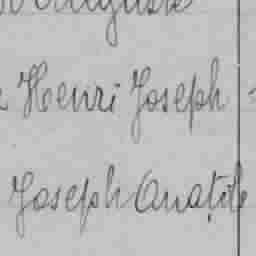 Auguste
Henri Joseph
Joseph Anatole